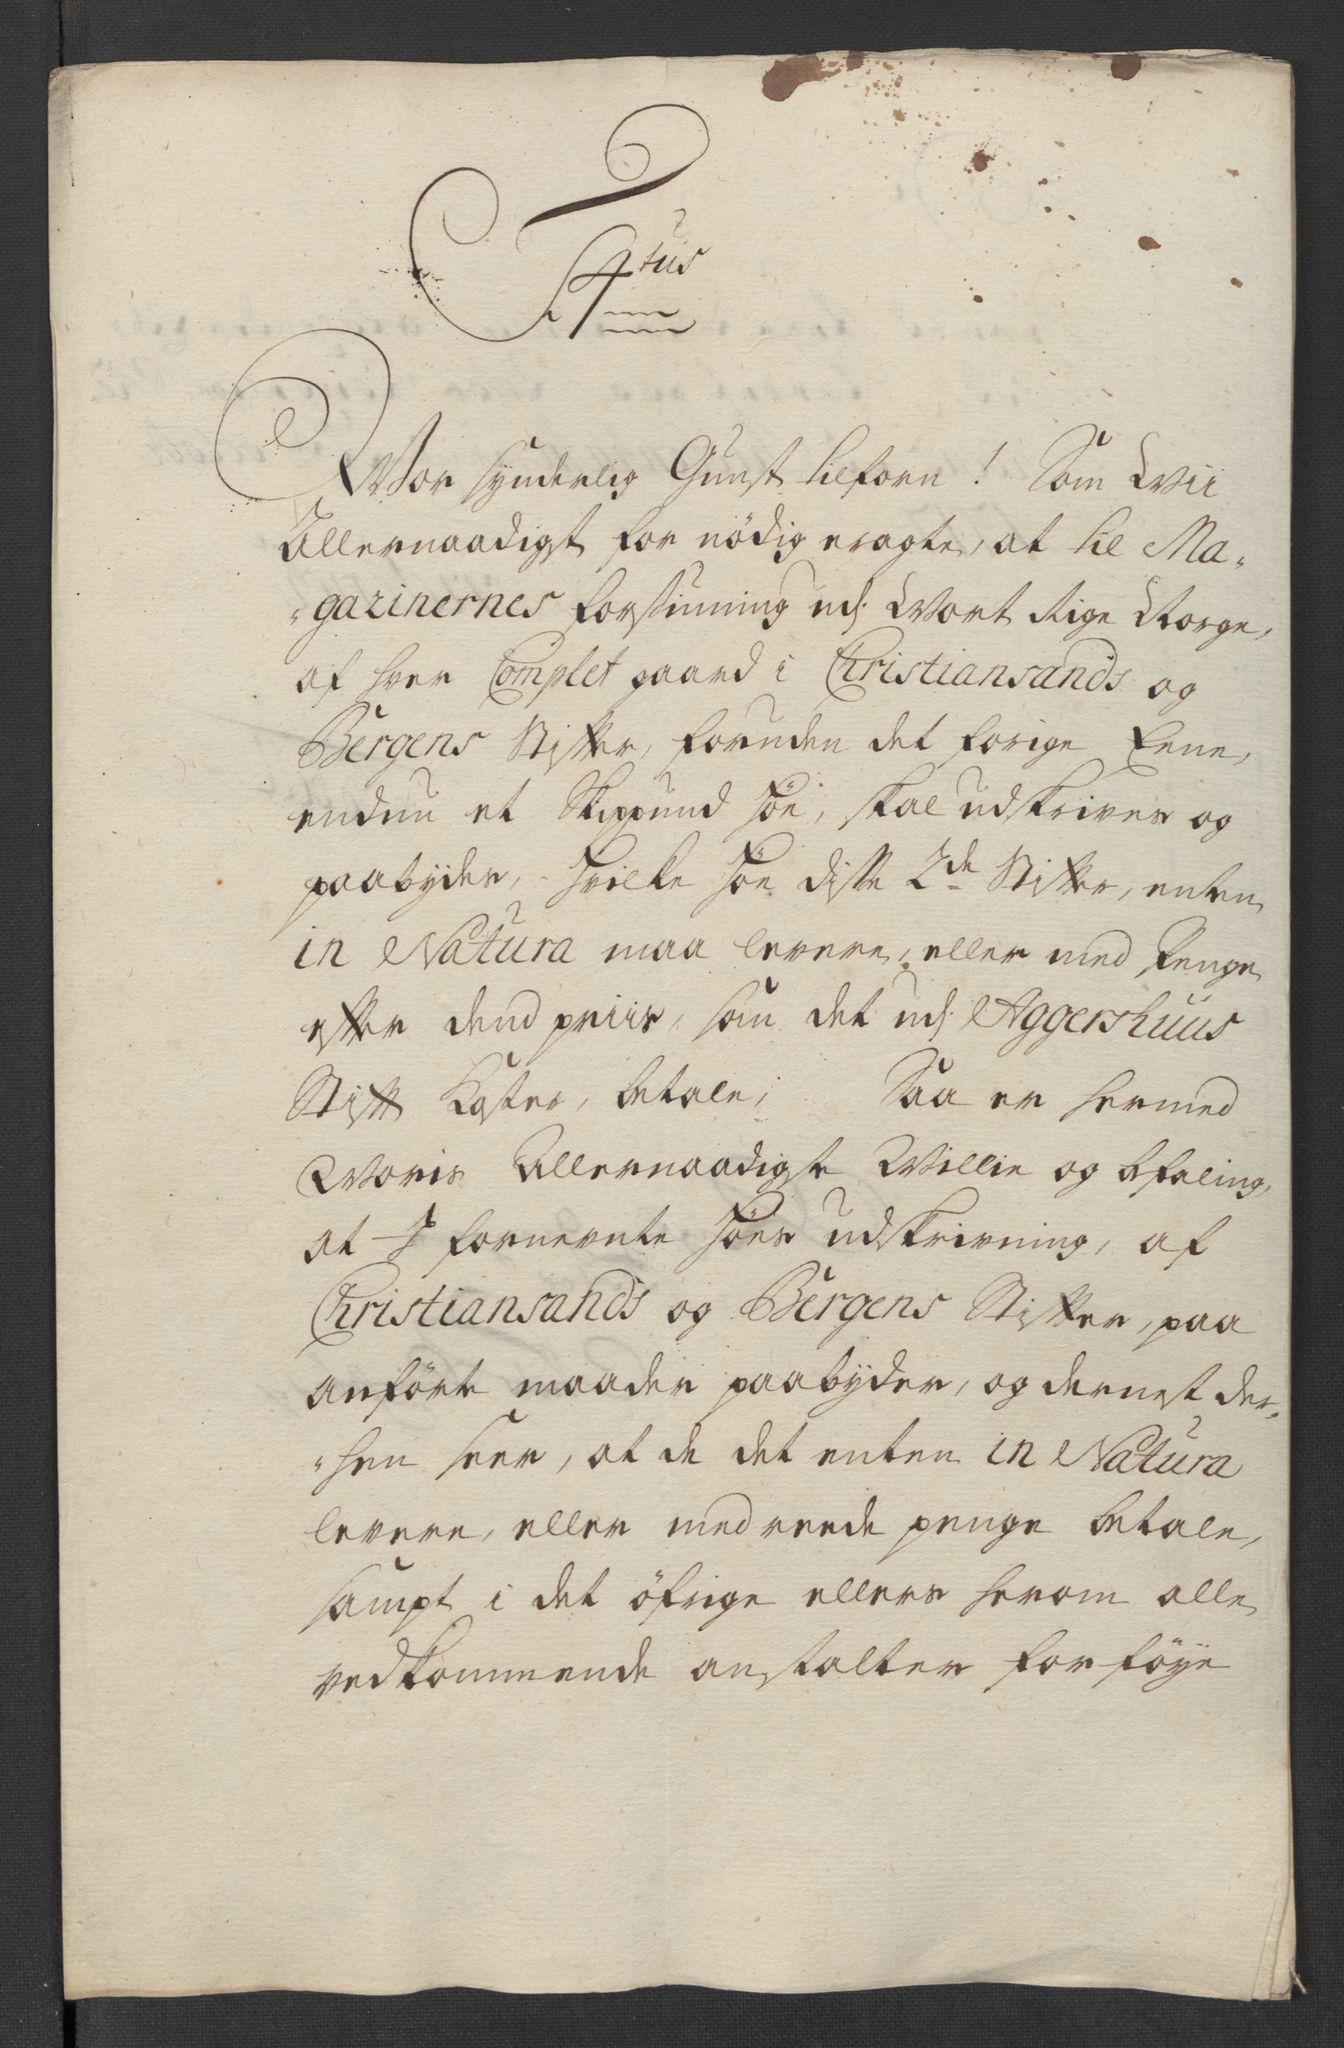 F 4tus
Wor synderlig Gunst tilforn! Som Wii
Allernaadigst for nödig eragte, at til Ma-
-gazinernes forsiuning udj Wort Rige Norge,
af hver Complet gaard i Christiansands og
Bergens Stifter, foruden det forige Eene,
endnu et Skippund Höe, skal udskrives og
paabydes, hvilke Höe disse 2de Stifter, enten
in Natura maa levere, eller med Penge
efter dend priis, som det udj Aggershuus
Stift koster, betale; Saa er hermed
Woris Allernaadigste Willie og befaling,
at I fornevnte Höes udskrivning, af
Christiansands og Bergens Stifter, paa
anförte maader paabyder, og dernest der-
-hen seer, at de det enten in Natura
levere, eller med reede penge betale,
sampt i det öfrige ellers herom alle
vedkommende anstalter forföye